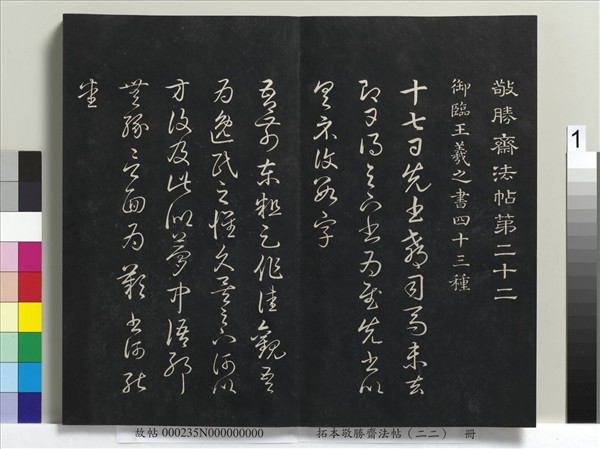 敬勝齋法帖第二十二
御臨王羲之書四十三種
十七日先書郗司馬未去
即日得足下書為慰先書以
具示復數字
吾前東粗足作佳觀吾
為逸民之懷久矣足下何以
方復及此似夢中語耶
無緣言面為歎書何能
悉
故帖 000235N000000000 拓本敬勝齋法帖（二二） 冊
1